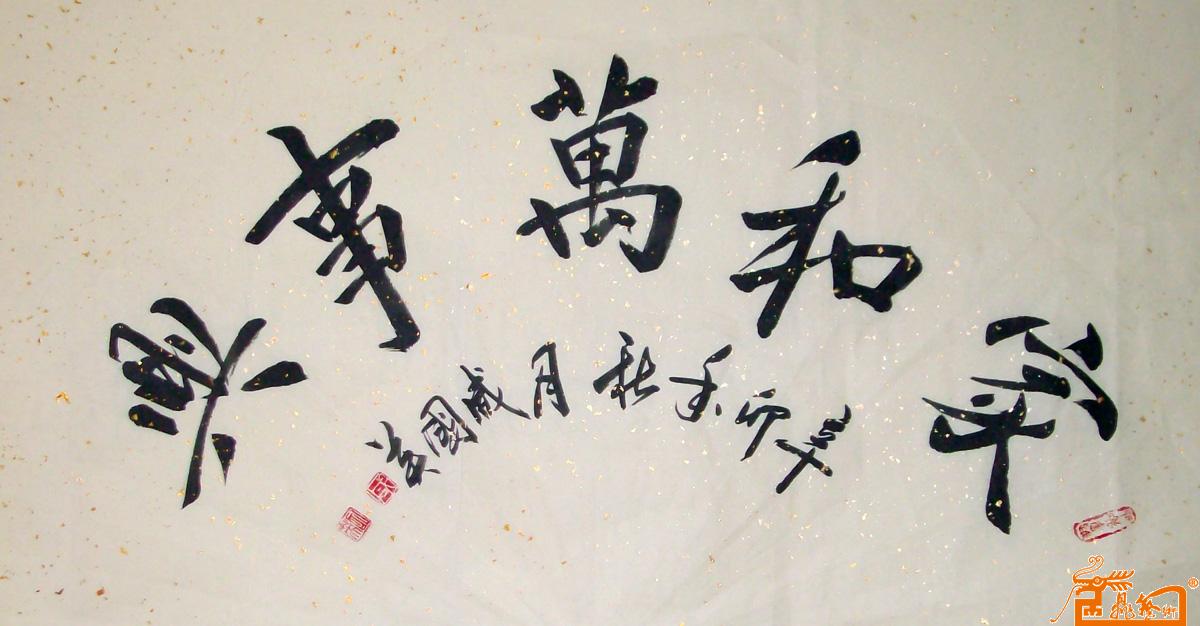 家和萬事興
辛卯年秋月國